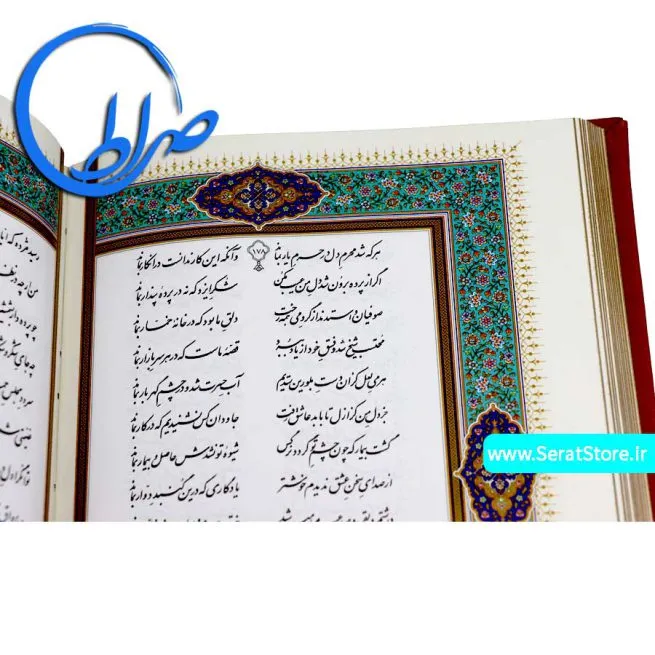 صراط
۱۷۸
هر که شد محرم دل در حرم یار بماند وانکه این کار ندانست در انکار بماند
اگر از پرده برون شد دل من عیب مکن شکر ایزد که نه در پردهٔ پندار بماند
صوفیان واستدند از گرو می همه رخت دلق ما بود که در خانهٔ خمار بماند
محتسب شیخ شد و فسق خود از یاد ببرد قصهٔ ماست که در هر سر بازار بماند
هر می لعل کزان دست بلورین ستدیم آب حسرت شد و در چشم گهربار بماند
جز دل من کز ازل تا به ابد عاشق رفت جاودان کس نشنیدیم که در کار بماند
گشت بیمار که چون چشم تو گردد نرگس شیوهٔ تو نشدش حاصل و بیمار بماند
از صدای سخن عشق ندیدم خوشتر یادگاری که درین گنبد دوار بماند
www.SeratStore.ir